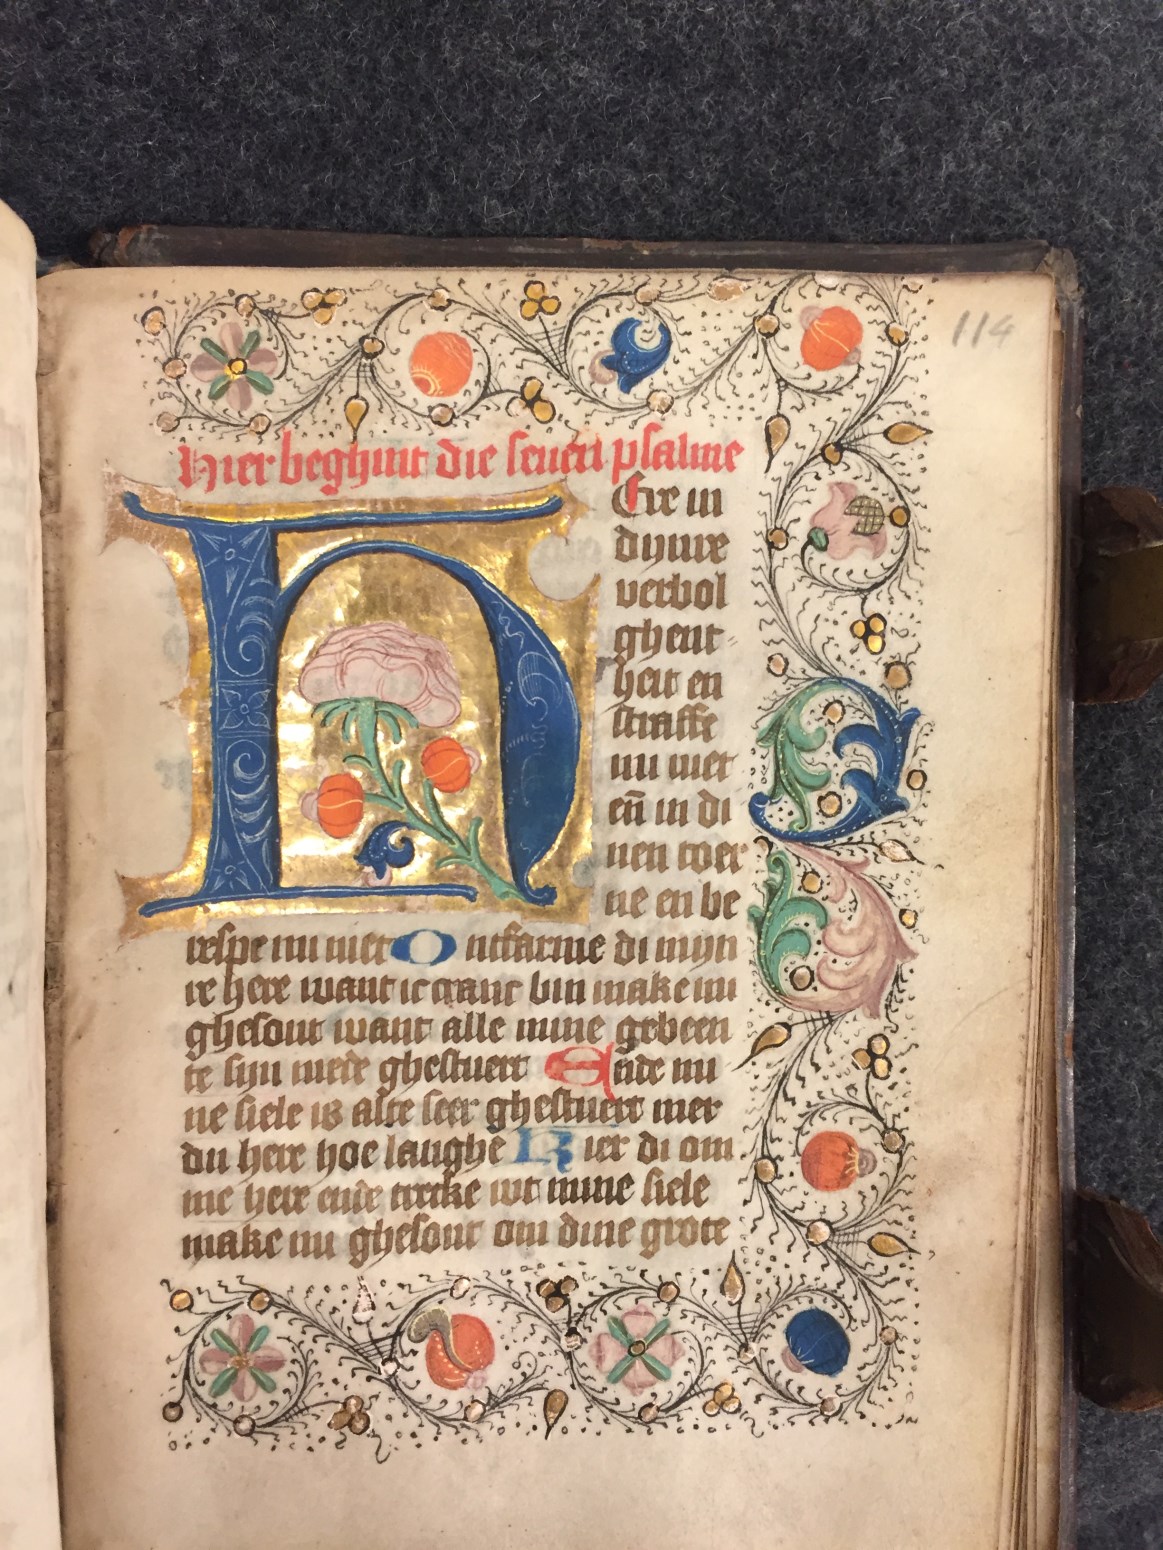 114
Hier beghint die seuen psalme
HEre in
dijnre
verbol
ghent
heit en
straffe
mi niet
en̄ in di
nen toer
ne en be
respe mi niet Ontfarme di mijn
re here want ic cranc bin make mi
ghesont want alle mine gebeen
te sijn mede ghestuert Ende mi
ne siele is alte seer ghestuert mer
du here hoe langhe Kier di om
me here ende trecke wt mine siele
make mi ghesont om dine grote